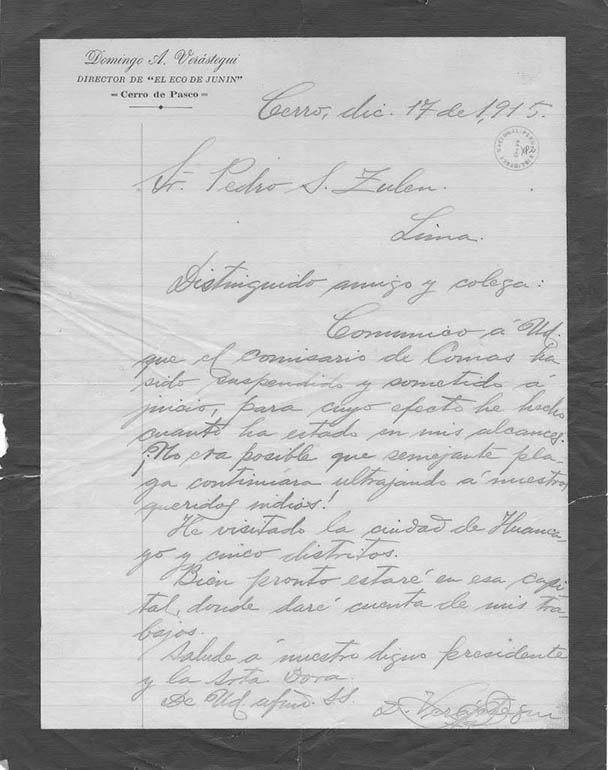 Domingo A. Verástegui
DIRECTOR DE "EL ECO DE JUNIN"
Cerro de Pasco
Cerro, dic. 17 de 1,915.
Sr. Pedro S. Zulen.
Lima.
Distinguido amigo y colega:
Comunico á Ud.
que el comisario de Comas ha
sido suspendido y sometido á
juicio, para cuyo efecto he hecho
cuanto ha estado en mis alcances.
¡No era posible que semejante pla
ga continuara ultrajando á nuestros
queridos indios!
He visitado la ciudad de Huanca-
yo y cinco distritos.
Bien pronto estaré en esa capi-
tal, donde daré cuenta de mis tra-
bajos.
Salude á nuestro digno presidente
y la Srta Dora.
De Ud. afmo. SS.
D. Verástegui